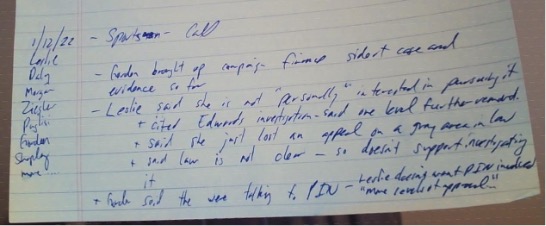 1/12/22 - Sportsman - Call
Leslie
Daly - Gordon brought up campaign finance sidert case and
Morgan evidence so far
Ziegler - Leslie said she is not "personally" interested in pursuing it
+ cited Edwards investigation - said one level further removed.
Gordon + said she just lost an appeal on a gray area in law
+ said law is not clear - so doesn't support investigating
more... it
+ Gordon said the were talking to PIN - Leslie doesn't want PIN involved
"more levels of approval"